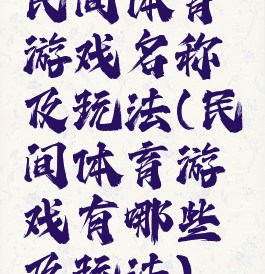 民间体育
游戏名称
及玩法(民
间体育游
戏有哪些
及玩法)